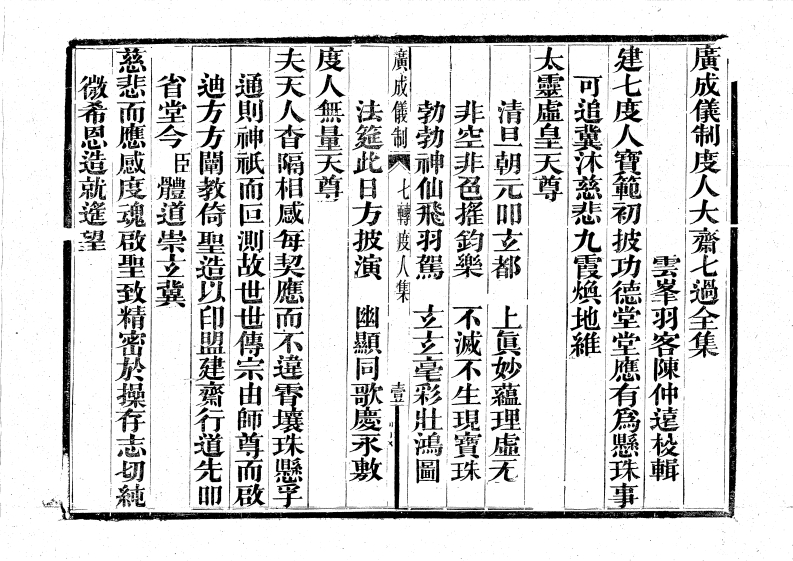 廣成儀制度人大齋七過全集
雲峯羽客陳仲遠校輯
建七度人寶範初披功德堂堂應有為懸珠事
可追冀沐慈悲九霞煥地維
太靈虛皇天尊
清旦朝元叩玄都　上眞妙蘊理虛无
非空非色搖鈞樂　不滅不生現寶珠
勃勃神仙飛羽駕　玄玄毫彩壯鴻圖
廣成儀制　七轉度人集　壹
法筵此日方披演　幽顯同歌慶永敷
度人無量天尊
夫天人杳隔相感每契應而不違霄壤珠懸孚
通則神祇而叵測故世世傳宗由師尊而啟
迪方方闡教倚聖造以印盟建齋行道先叩
省堂今臣體道崇玄冀
慈悲而應感度魂啟聖致精密於操存志切純
微希恩造就遙望